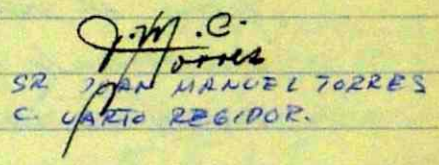 J.M.C.
Torres
SR JUAN MANUEL TORRES
C. UARTO REGIDOR.